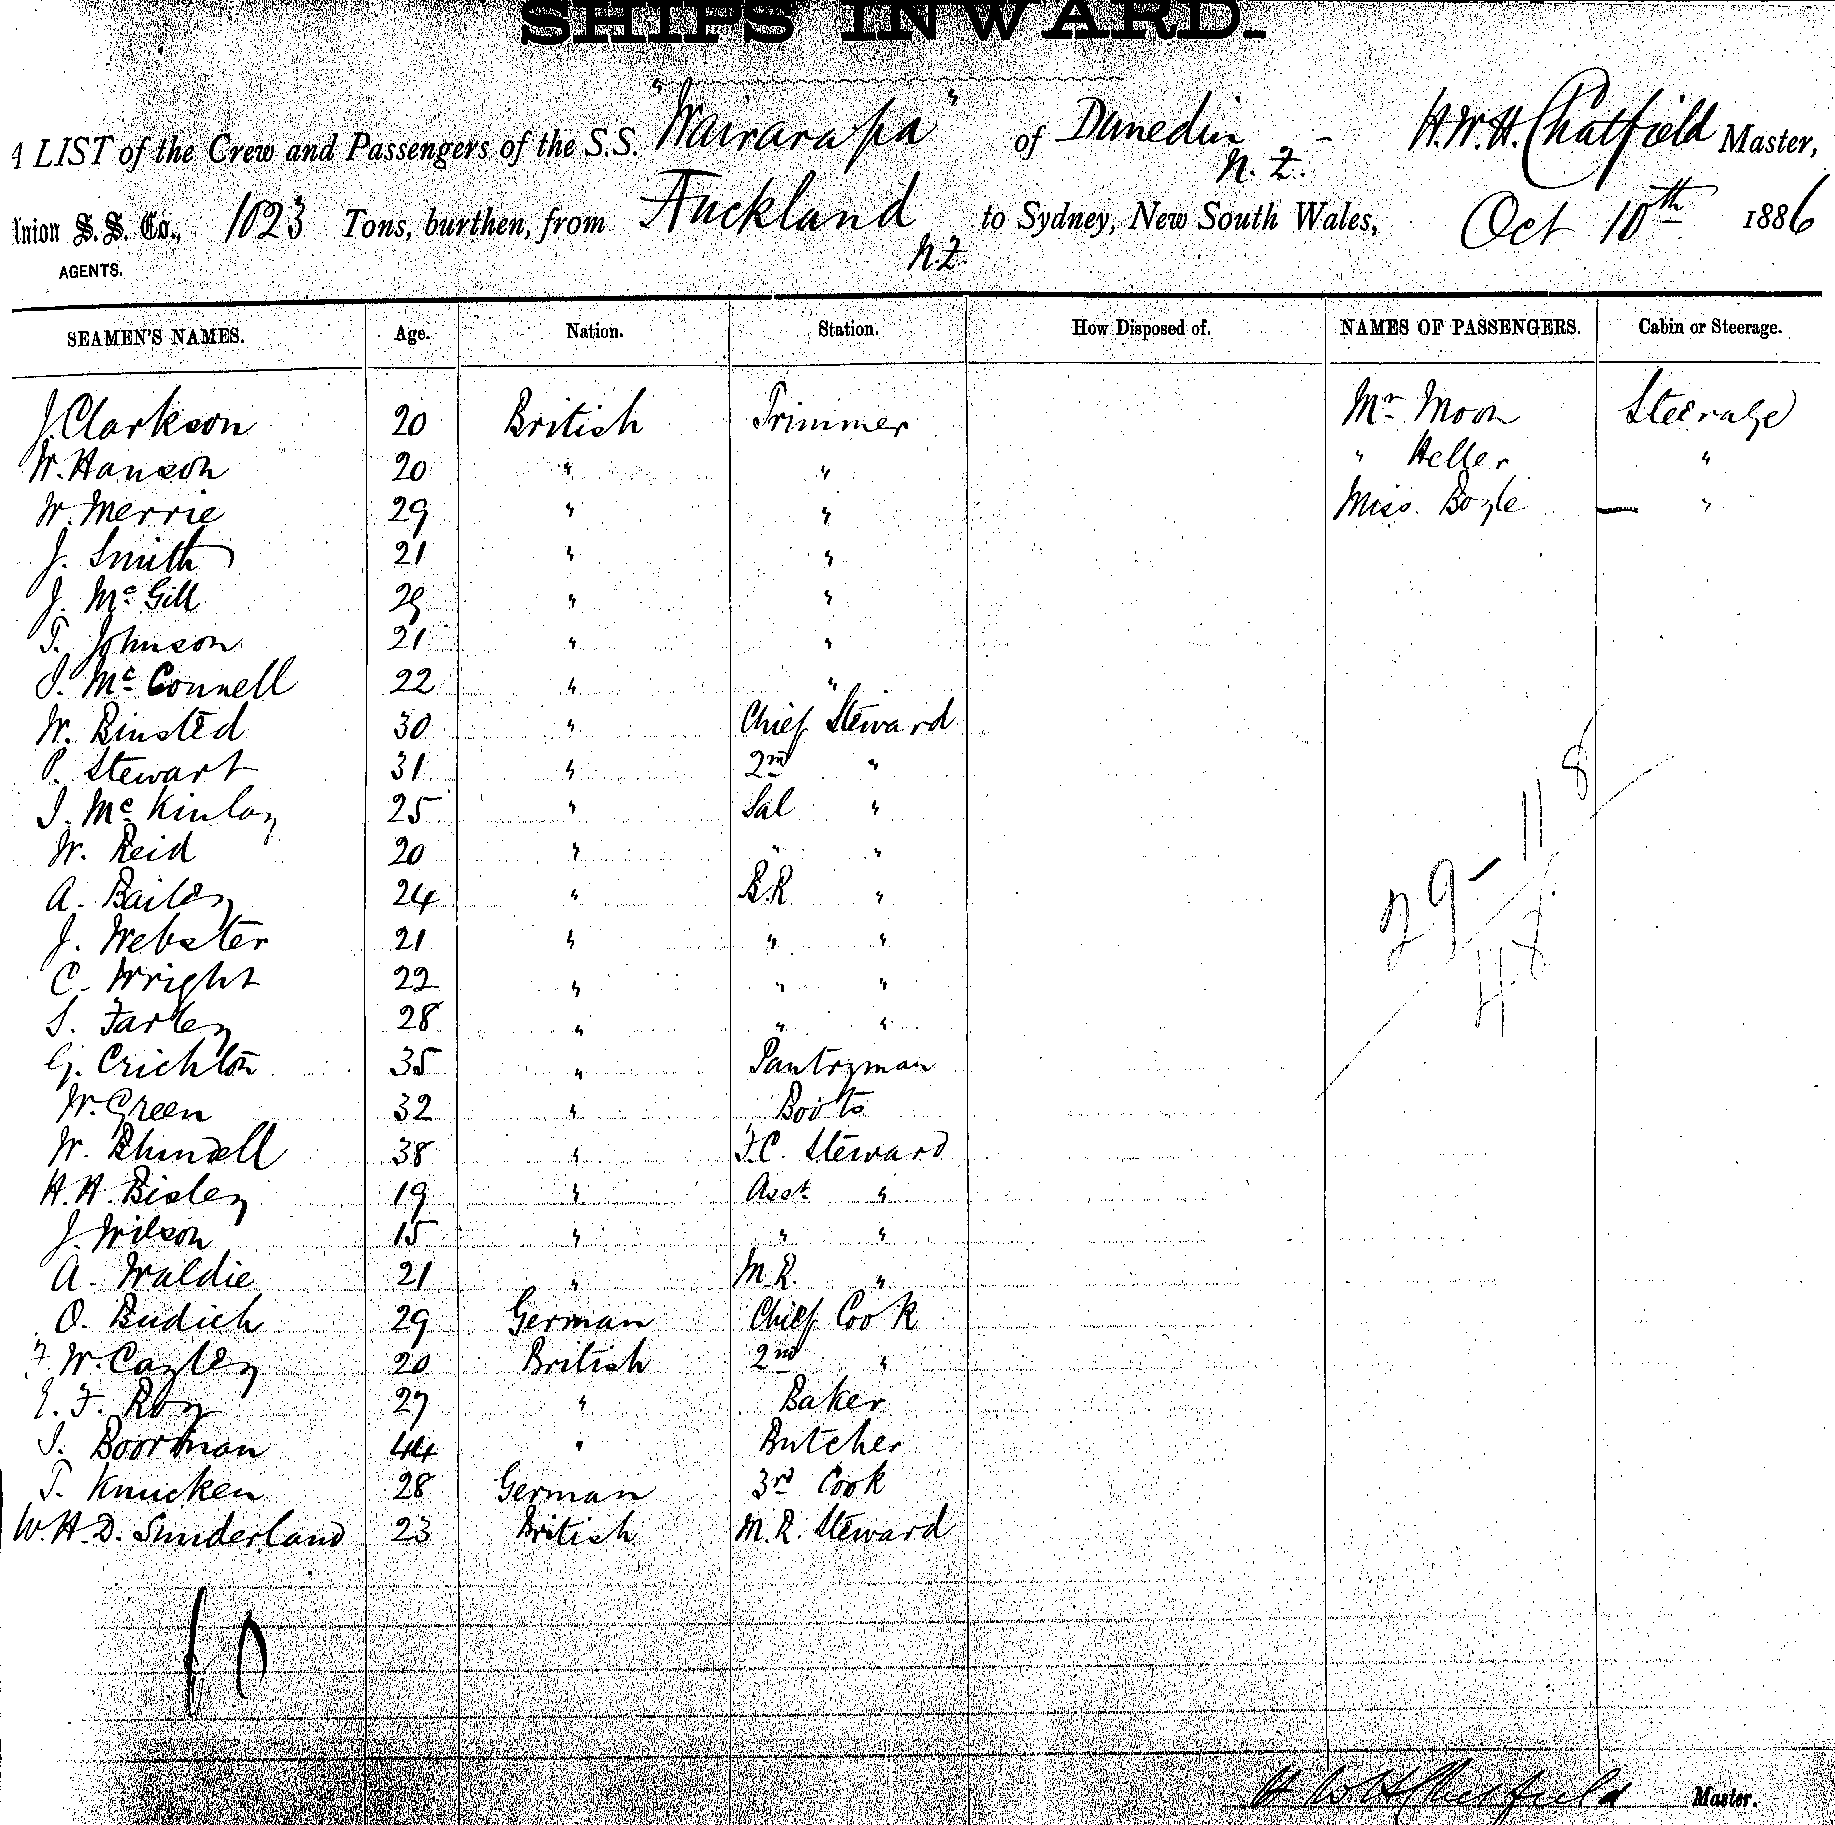 SHIPS INWARD.
A LIST of the Crew and Passengers of the S.S. "Wairarapa" of Dunedin N.Z. - H.W.H. Chatfield Master,
Union S. S. Co., 1023 Tons, burthen, from Auckland N.Z. to Sydney, New South Wales, Oct 10th 1886
AGENTS.
SEAMEN'S NAMES. Age. Nation. Station. How Disposed of. NAMES OF PASSENGERS. Cabin or Steerage.
J. Clarkson 20 British Trimmer Mr Moon Steerage
W. Hanson 20 " " " Heller "
W. Merrie 29 " " Miss. Boyle — "
J. Smith 21 " "
J. Mc Gill 29 " "
T. Johnson 21 " "
J. Mc Connell 22 " "
W. Binsted 30 " Chief Steward
P. Stewart 31 " 2nd "
J. Mc Kinlay 25 " Sal "
W. Reid 20 " " "
A. Bailey 24 " B.R "
J. Webster 21 " " "
C. Wright 22 " " "
S. Farley 28 " " "
G. Crichton 35 " Pantryman
W. Green 32 " Boots
W. Blundell 38 " F.C. Steward
H.H. Bisley 19 " Asst "
J. Wilson 15 " " "
A. Waldie 21 " M.R. "
O. Budich 29 German Chief Cook
F. W. Cayley 20 British 2nd "
E. F. Roy 27 " Baker
J. Boorman 44 " Butcher
T. Knucken 28 German 3rd Cook
W.H.D. Sunderland 23 British M.R. Steward
29 - 11 8
48
H W H Chatfield Master.